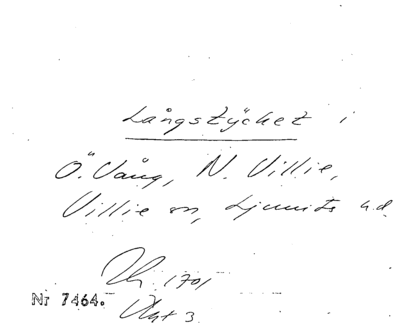 Långstycket i
Ö. Vång, N. Villie,
Villie sn, Ljunits hd
1701
Nr 7464.
3